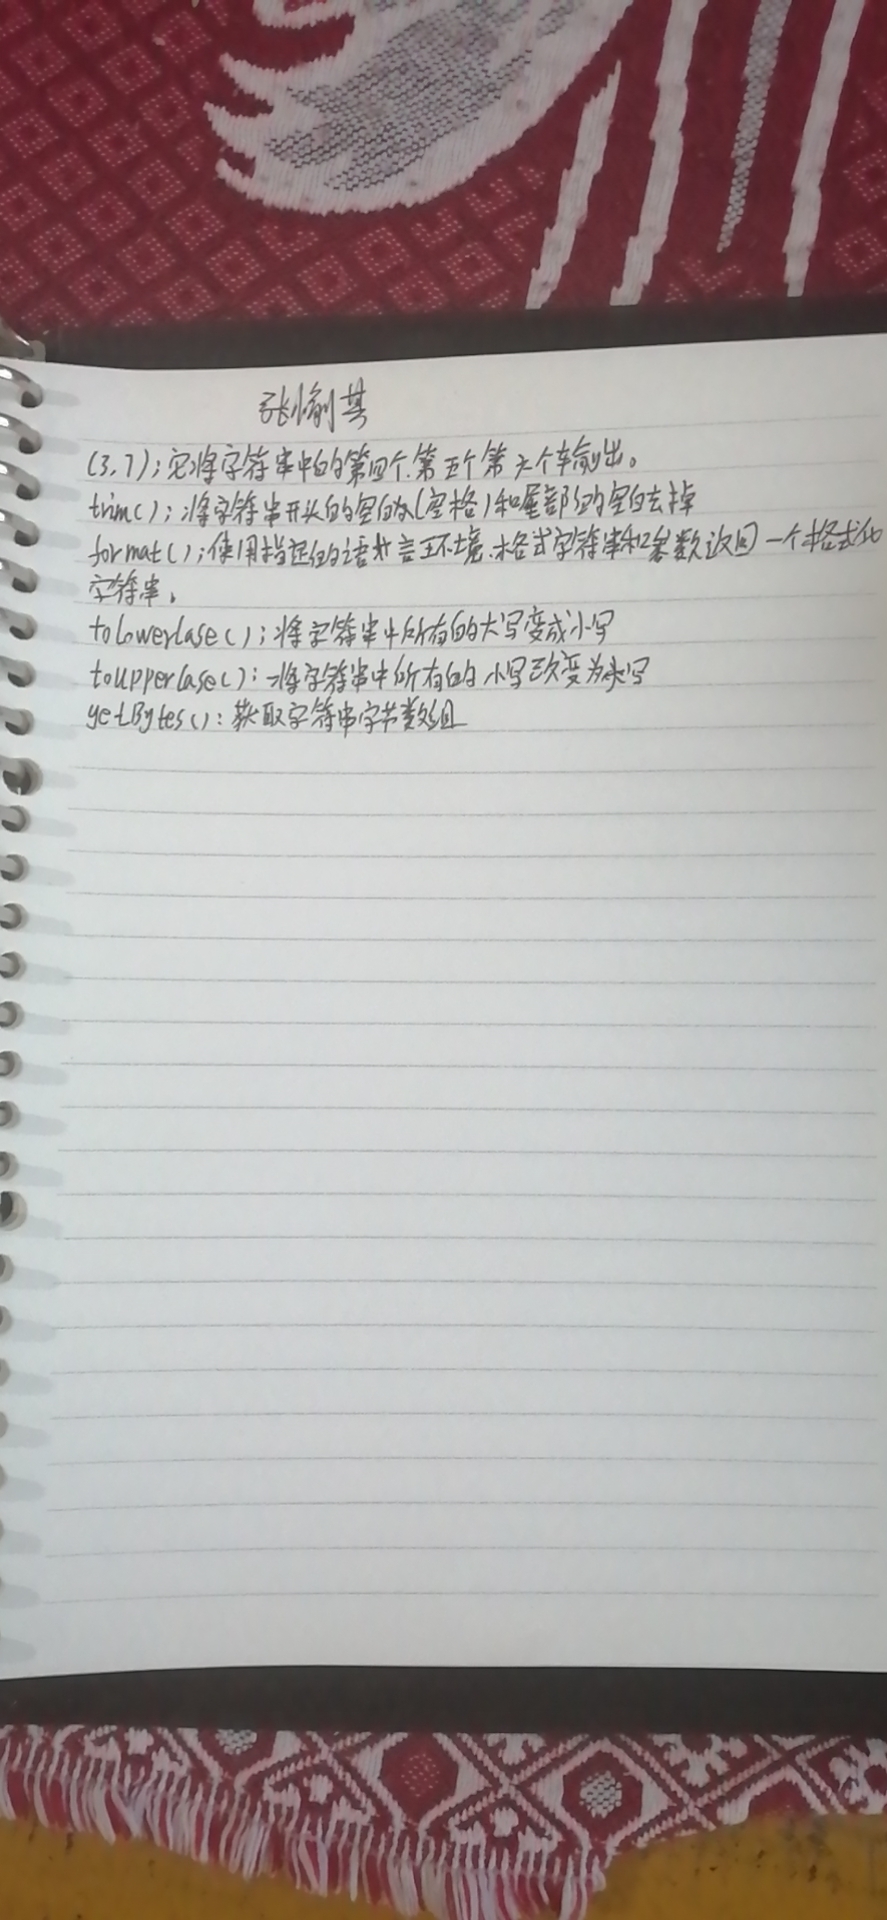 (3,7);它将字符串中的第四个.第五个第六个输出。
trim();将字符串开头的空白(空格)和尾部的空白去掉
format();使用指定的语言环境.格式字符串和参数返回一个格式化
字符串。
toLowerCase();将字符串中所有的大写变成小写
toupperCase():将字符串中所有的小写改变为大写
getBytes():获取字符串字节数组